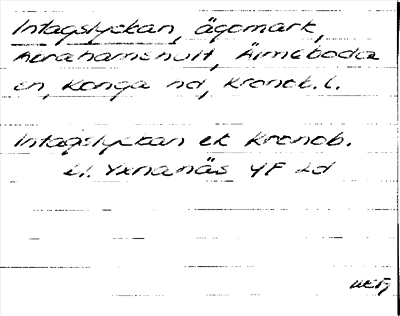 Intagslyckan, ägomark,
Abrahamshult, Älmeboda
sn, Konga hd, Kronob. l.
Intagslyckan ek Kronob.
bl. Yxnanäs 4F 2d